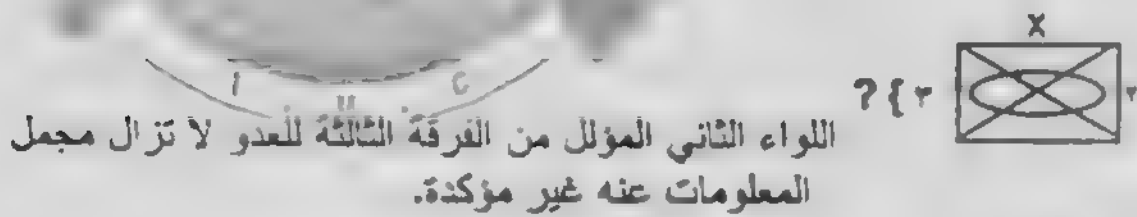 X
? { ٣ ٢
اللواء الثاني المؤلل من الفرقة الثالثة للعدو لا تزال مجمل
المعلومات عنه غير مؤكدة.